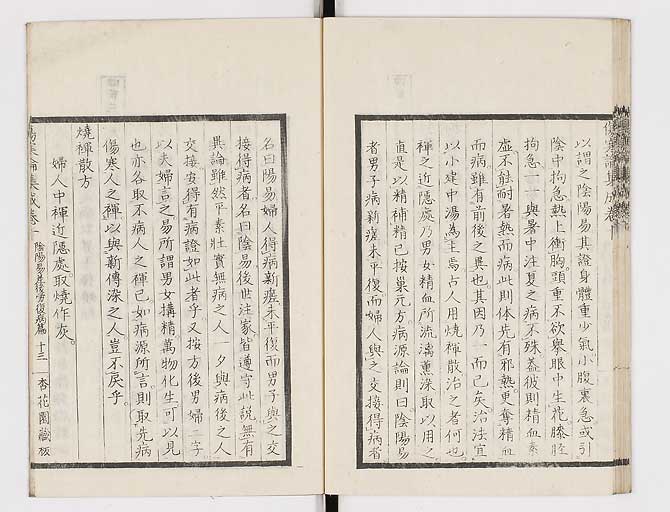 以謂之陰陽易其證身體重少氣小腹裏急或引
陰中拘急熱上衝胸頭重不欲舉眼中生花膝脛
拘急一一與暑中注夏之病不殊蓋彼則精血素
虛不能耐暑熱而病此則体先有邪熱更奪精血
而病雖有前後之異也其因乃一而已矣治法宜
以小建中湯為主焉占人用燒裩散治之者何也
裩之近隱處乃男女精血所流漓薰染取以用之
直是以精補精已按巢元方病源論則曰陰陽易
者男子病新瘥未平復而婦人與之交接得病者
名曰陽易婦人得病新瘥未平復而男子與之交
接得病者名曰陰易後世注家皆遵守此說無有
異論雖然平素壯實無病之人一夕與病後之人
交接安得有病證如此者乎又按方後男婦二字
以夫婦言之易所謂男女搆精萬物化生可以見
也亦各取不病人之裩已如病源所言則取先病
傷寒人之裩以與新傳染之人豈不戾乎
燒裩散方
婦人中裩近隱處取燒作灰
傷寒論集成卷 陰陽易差後勞復病篇 十三 杏花園藏板